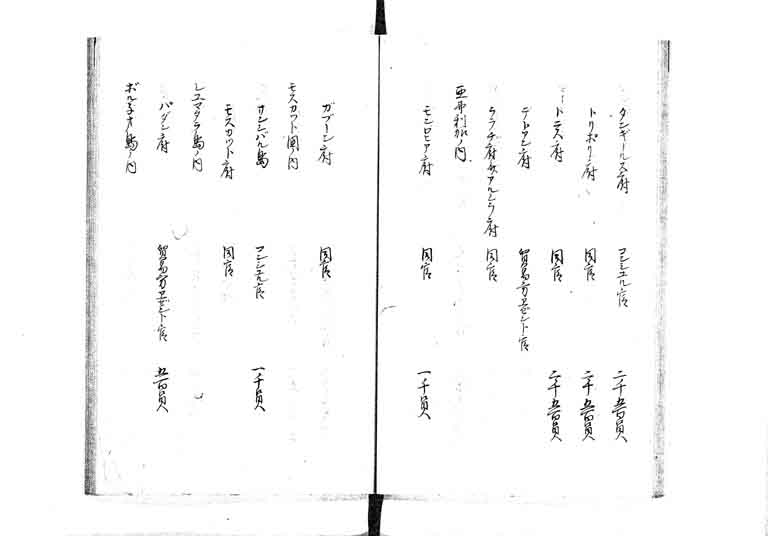 タンギールス府 コンシュル官 二千五百員
トリポリー府 同官 二千五百員
トニス府 同官 二千五百員
テトアン府 貿易方エゼント官
ララチ府及アルシラ府 同官
亜弗利加ノ内
モンロビア府 同官 一千員
ガブーン府 同官
モスカット国ノ内
サンシバル島 コンシュル官 一千員
モスカット府 同官
シュマタラ島ノ内
パダン府 貿易方エゼント官 五百員
ボルネオ島ノ内